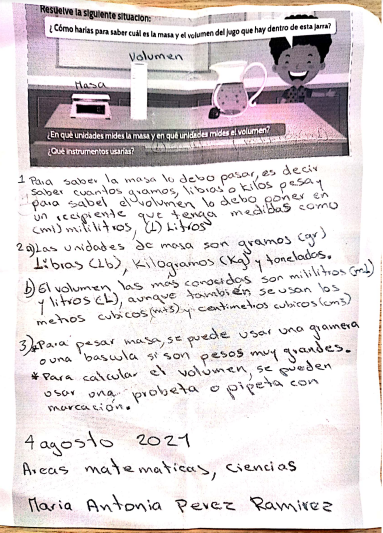 Resuelve la siguiente situación:
¿Cómo harías para saber cuál es la masa y el volumen del jugo que hay dentro de esta jarra?
Volumen
Masa
¿En qué unidades mides la masa y en qué unidades mides el volumen?
¿Qué instrumentos usarías?
1 Para saber la masa lo debo pasar, es decir
saber cuantos gramos, libras o kilos pesa y
para saber el volumen lo debo poner en
un recipiente que tenga medidas como
(ml) mililitros, (L) Litros
2 a) Las unidades de masa son gramos (gr)
Libras (Lb), Kilogramos (Kg) y toneladas.
b) El volumen las mas conocidas son mililitros (mL)
y litros (L), aunque tambien se usan los
metros cubicos (mt3) y centimetros cubicos (cm3)
3) * Para pesar masa, se puede usar una gramera
o una bascula si son pesos muy grandes.
* Para calcular el volumen, se pueden
usar una probeta o pipeta con
marcación.
4 agosto 2021
Areas matematicas, ciencias
Maria Antonia Perez Ramirez